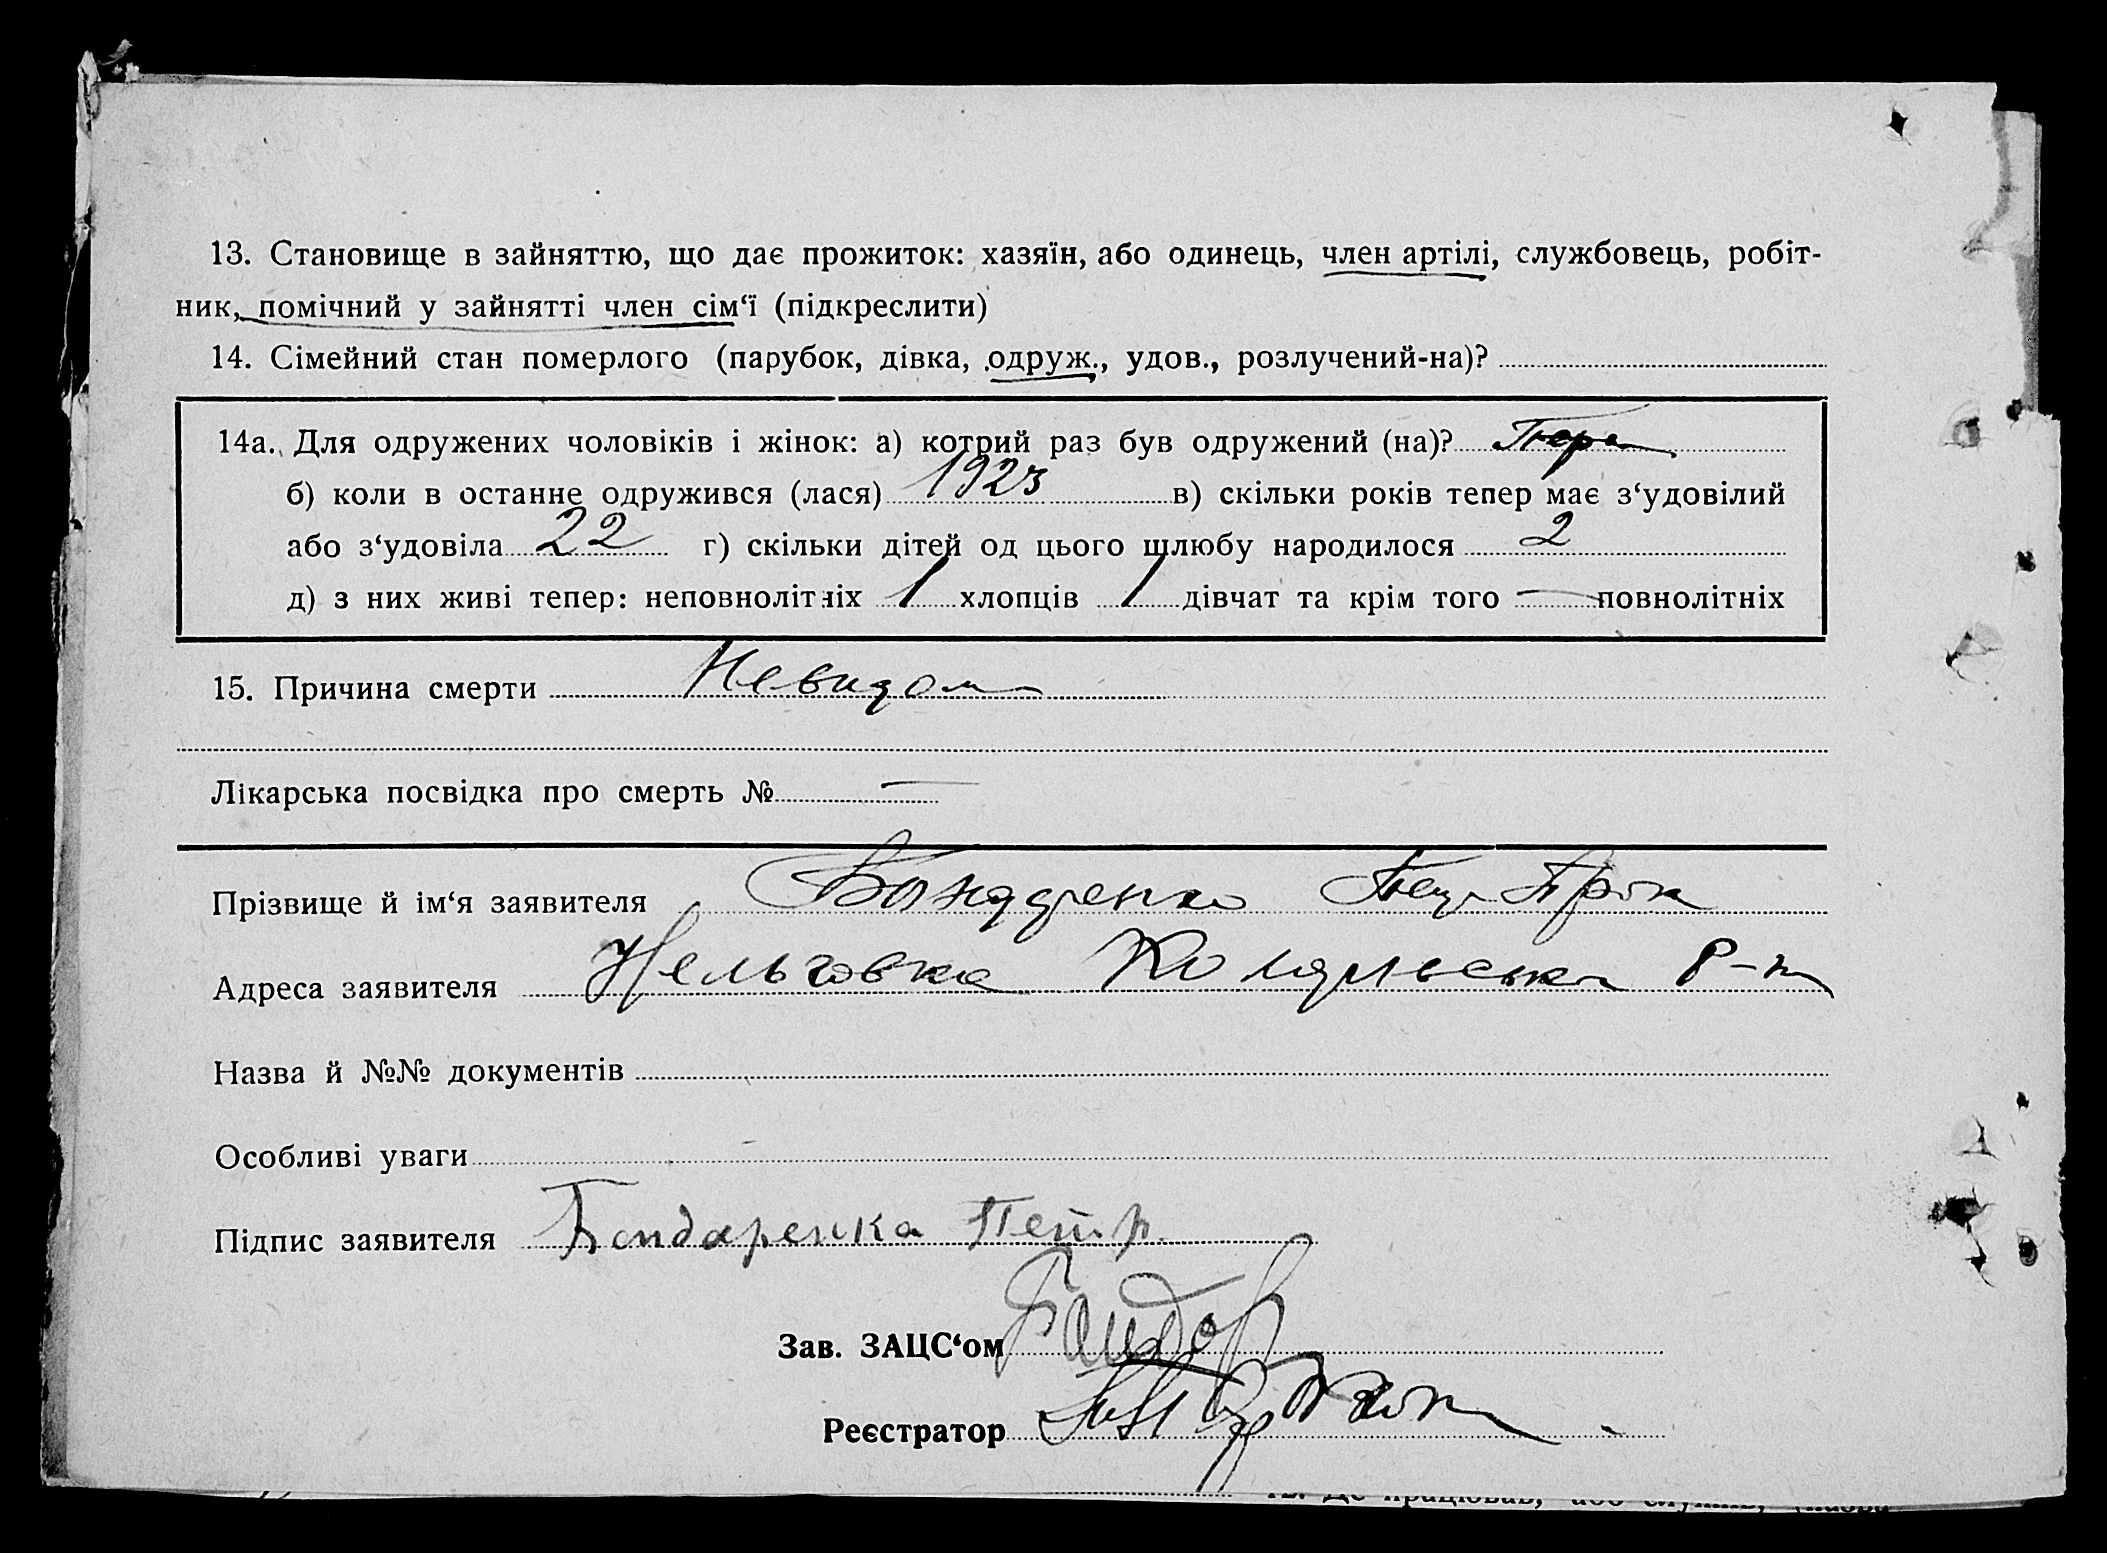 13. Становище в зайняттю, що дає прожиток: хазяїн, або одинець, член артілі, службовець, робіт-
ник, помічний у зайнятті член сім‘ї (підкреслити)
14. Сімейний стан померлого (парубок, дівка, одруж., удов., розлучений-на)?
14а. Для одружених чоловіків і жінок: а) котрий раз був одружений (на)?
б) коли в останне одружився (лася) 1923 в) скільки років тепер має з‘удовілий
або з‘удовіла 22 г) скільки дітей од цього шлюбу народилося 2
д) з них живі тепер: неповнолітніх 1 хлопців 1 дівчат та крім того — повнолітніх
15. Причина смерти Невидом
Лікарська посвідка про смерть № —
Прізвище й ім‘я заявителя Бондаренко
Адреса заявителя Нельговка Р-н
Назва й №№ документів
Особливі уваги
Підпис заявителя Бондаренка Петр.
Зав. ЗАЦС‘ом
Реєстратор